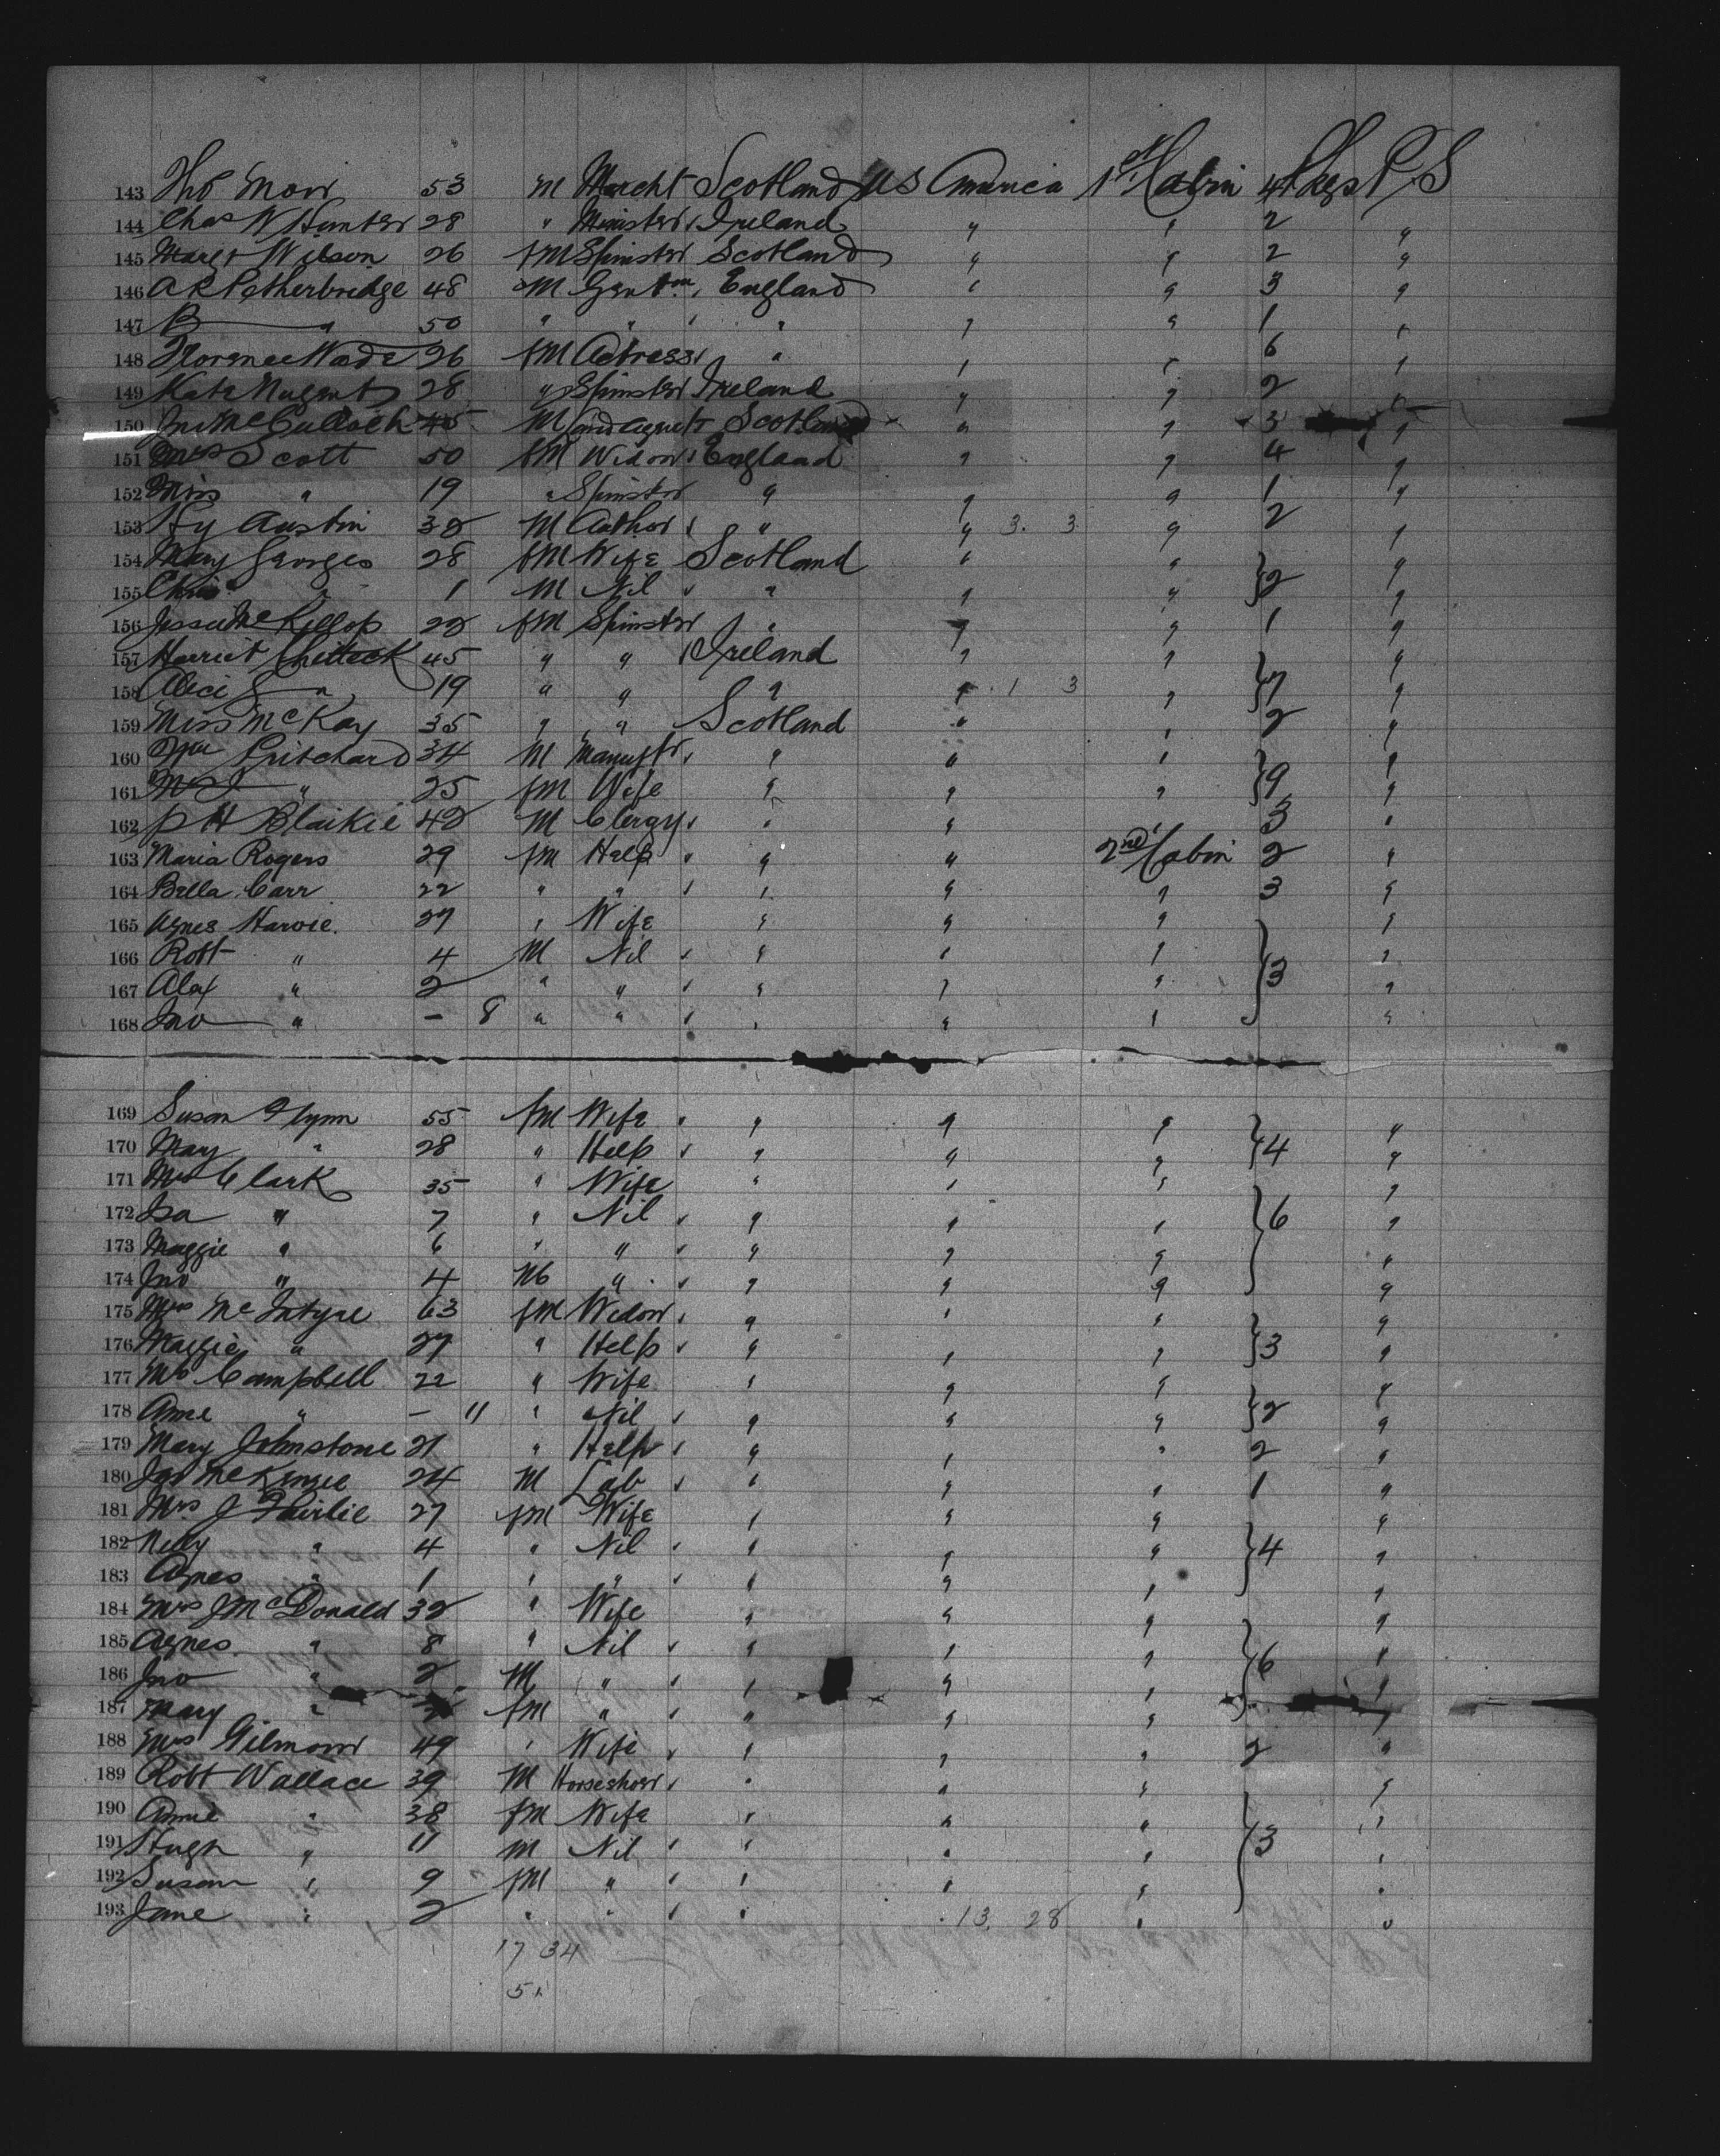 143 Tho Morr 53 M Marcht Scotland US America 1st Cabin 4 Pkgs P/S
144 Chas W Hunter 28 " Minister Ireland " " 2 "
145 Margt Wilson 26 fM Spinster Scotland " " 2 "
146 A R Petherbridge 48 M Gentm England " " 3 "
147 B " 50 " " " " " 1 "
148 Florence Wade 26 fM Actress " " " 6 "
149 Kate Nugent 28 " Spinster Ireland " " 2 "
150 Jno McCulloch 45 M Scotland " " 3 "
151 Mrs Scott 50 fM Widow England " " 4 "
152 Miss " 19 " Spinster " " " 1 "
153 Hy Austin 32 M Author " " 3. 3 " 2 "
154 Mary Georges 28 fM Wife Scotland " " "
155 " 1 M Nil " " " } 2 "
156 Jessie McKillop 22 fM Spinster " " " 1 "
157 Harriet 45 " " Ireland " " "
158 Alice " 19 " " " " 1 3 " } 7 "
159 Miss McKay 35 " " Scotland " " 2 "
160 Wm Pritchard 34 M Manuftr " " " "
161 " 25 fM Wife " " " } 9 "
162 P H Blaikie 42 M Clergy " " " 3 "
163 Maria Rogers 29 fM Help " " 2nd Cabin 2 "
164 Bella Carr 22 " " " " " 3 "
165 Agnes Harvie 27 " Wife " " " "
166 Robt " 4 M Nil " " " "
167 Alex " 2 " " " " " } 3 "
168 Jno " – 8 " " " " " "
169 Susan Flynn 55 fM Wife " " " "
170 May " 28 " Help " " " } 4 "
171 Mrs Clark 35 " Wife " " " "
172 Isa " 7 " Nil " " " } 6 "
173 Maggie " 6 " " " " " "
174 Jno " 4 M " " " " "
175 Mrs McIntyre 63 fM Widow " " " "
176 Maggie " 27 " Help " " " } 3 "
177 Mrs Campbell 22 " Wife " " " "
178 Anne " – 11 " Nil " " " } 2 "
179 Mary Johnstone 21 " Help " " " 2 "
180 Jas McKenzie 24 M Lab " " " 1 "
181 Mrs J Fairlie 27 fM Wife " " " "
182 Nelly " 4 " Nil " " " } 4 "
183 Agnes " 1 " " " " " "
184 Mrs J McDonald 32 " Wife " " " "
185 Agnes " 8 " Nil " " " "
186 Jno " 2 M " " " " } 6 "
187 Mary " fM " " " " "
188 Mrs Gilmour 49 " Wife " " " 2 "
189 Robt Wallace 39 M Horseshoer " " " "
190 Annie " 38 fM Wife " " " "
191 Hugh " 11 M Nil " " " } 3 "
192 Susan " 9 fM " " " " "
193 Jane " 2 " " " " 13. 28 " "
17 34
51